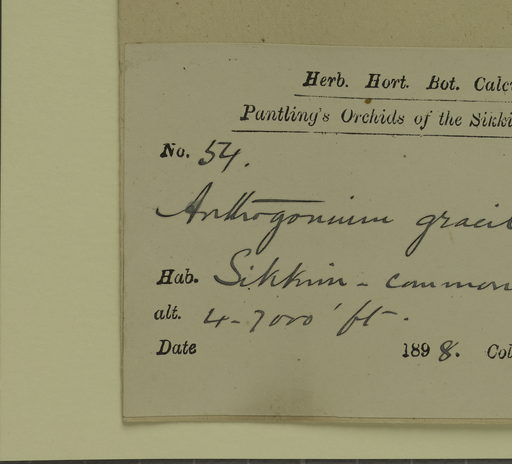 Herb. Hort. Bot. Calc
Pantling's Orchids of the Sikki
No. 54.
Anthogonium gracil
Hab. Sikkim - common
alt. 4-7000' ft.
Date 1898. Col